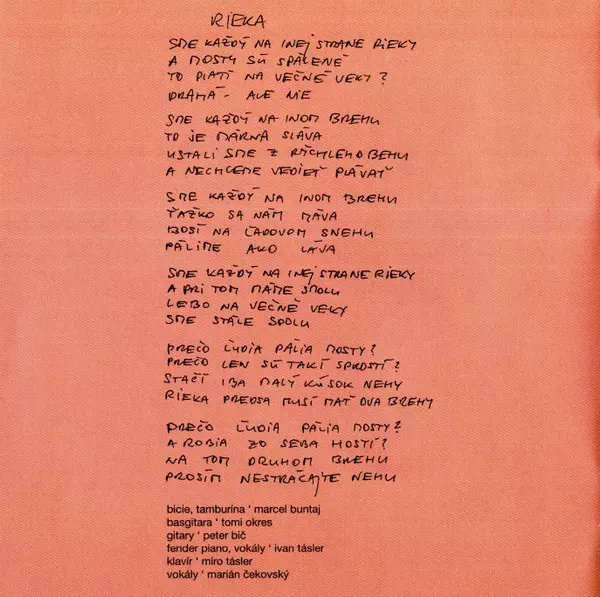 RIEKA
SME KAŽDÝ NA INEJ STRANE RIEKY
A MOSTY SÚ SPÁLENÉ
TO PLATÍ NA VEČNÉ VEKY?
DRÁMA - ALE NIE
SME KAŽDÝ NA INOM BREHU
TO JE MÁRNA SLÁVA
USTALI SME Z RÝCHLEHO BEHU
A NECHCEME VEDIEŤ PLÁVAŤ
SME KAŽDÝ NA INOM BREHU
ŤAŽKO SA NÁM MÁVA
BOSÍ NA ĽADOVOM SNEHU
PÁLIME AKO LÁVA
SME KAŽDÝ NA INEJ STRANE RIEKY
A PRI TOM MÁME SMOLU
LEBO NA VEČNÉ VEKY
SME STÁLE SPOLU
PREČO ĽUDIA PÁLIA MOSTY?
PREČO LEN SÚ TAKÍ SPROSTÍ?
STAČÍ IBA MALÝ KÚSOK NEHY
RIEKA PREDSA MUSÍ MAŤ DVA BREHY
PREČO ĽUDIA PÁLIA MOSTY?
A ROBIA ZO SEBA HOSTÍ?
NA TOM DRUHOM BREHU
PROSÍM NESTRÁCAJTE NEHU
bicie, tamburína ' marcel buntaj
basgitara ' tomi okres
gitary ' peter bič
fender piano, vokály ' ivan tásler
klavír ' miro tásler
vokály ' marián čekovský